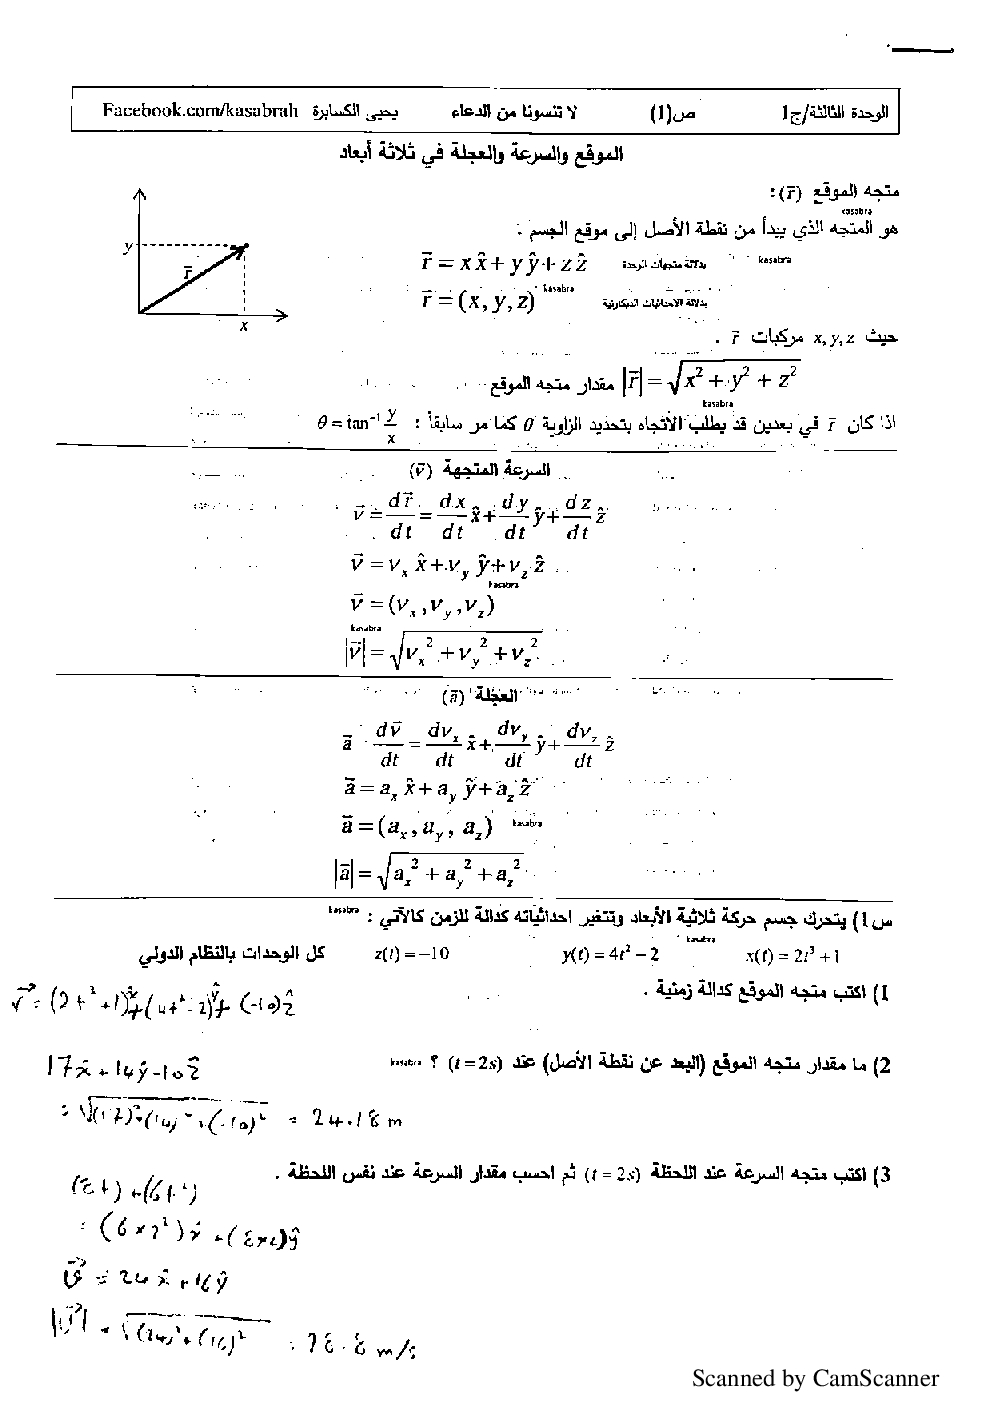 الوحدة الثالثة/ج1 ص(1) لا تنسونا من الدعاء يحيى الكسابرة Facebook.com/kasabrah
الموقع والسرعة والعجلة في ثلاثة أبعاد
متجه الموقع (r⃗):
kasabra
هو المتجه الذي يبدأ من نقطة الأصل إلى موقع الجسم .
r⃗ = x x̂ + y ŷ + z ẑ بدلالة متجهات الوحدة kasabra
r⃗ = (x, y, z) kasabra بدلالة الاحداثيات الديكارتية
y
r⃗
x
حيث x, y, z مركبات r⃗ .
مقدار متجه الموقع |r⃗| = √(x² + y² + z²)
kasabra
اذا كان r⃗ في بعدين قد يطلب الاتجاه بتحديد الزاوية θ كما مر سابقا : θ = tan⁻¹ y/x
السرعة المتجهة (v⃗)
v⃗ = dr⃗/dt = dx/dt x̂ + dy/dt ŷ + dz/dt ẑ
v⃗ = vₓ x̂ + v_y ŷ + v_z ẑ
kasabra
v⃗ = (vₓ, v_y, v_z)
kasabra
|v⃗| = √(vₓ² + v_y² + v_z²)
العجلة (a⃗)
a⃗ dv⃗/dt = dvₓ/dt x̂ + dv_y/dt ŷ + dv_z/dt ẑ
a⃗ = aₓ x̂ + a_y ŷ + a_z ẑ
a⃗ = (aₓ, a_y, a_z) kasabra
|a⃗| = √(aₓ² + a_y² + a_z²)
س1) يتحرك جسم حركة ثلاثية الأبعاد وتتغير احداثياته كدالة للزمن كالآتي : kasabra
kasabra
x(t) = 2t³ + 1 y(t) = 4t² − 2 z(t) = −10 كل الوحدات بالنظام الدولي
1) اكتب متجه الموقع كدالة زمنية .
r⃗ = (2t³ + 1)x̂ + (4t² - 2)ŷ + (-10)ẑ
2) ما مقدار متجه الموقع (البعد عن نقطة الأصل) عند (t = 2s) ؟ kasabra
17x̂ + 14ŷ - 10ẑ
= √((17)² + (14)² + (-10)²) = 24.18 m
3) اكتب متجه السرعة عند اللحظة (t = 2s) ثم احسب مقدار السرعة عند نفس اللحظة .
(8t) + (6t²)
= (6×2²)x̂ + (8×2)ŷ
v⃗ = 24x̂ + 16ŷ
|v⃗| = √((24)² + (16)²) = 28.8 m/s
Scanned by CamScanner